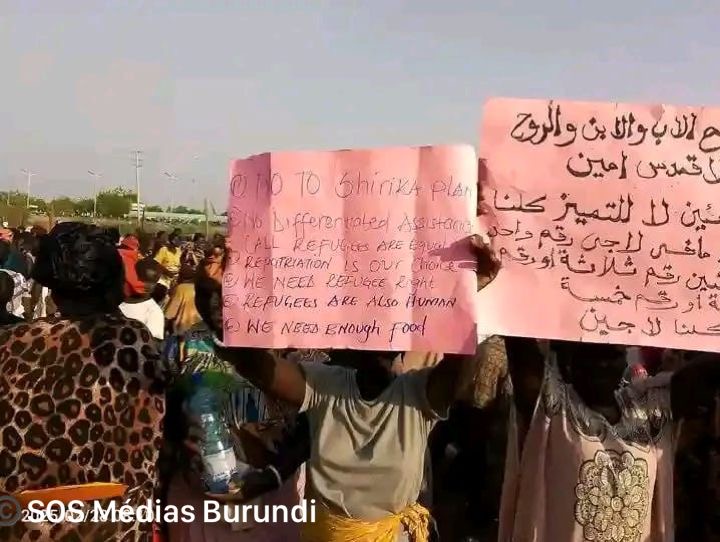 ① NO TO Shirika plan
② No Differentiated Assistance
③ (ALL REFUGEES ARE Equal
④ REPATRIATION IS OUR choice
⑤ WE NEED REFUGEE Right
⑥ REFUGEES ARE ALSO HUMAN
⑦ WE NEED ENough Food
الاب والابن والروح
القدس امين
لا للتميز كلنا
مافي لاجئ رقم واحد
رقم ثلاثة او رقم
او رقم خمسة
كلنا لاجين
© SOS Médias Burundi